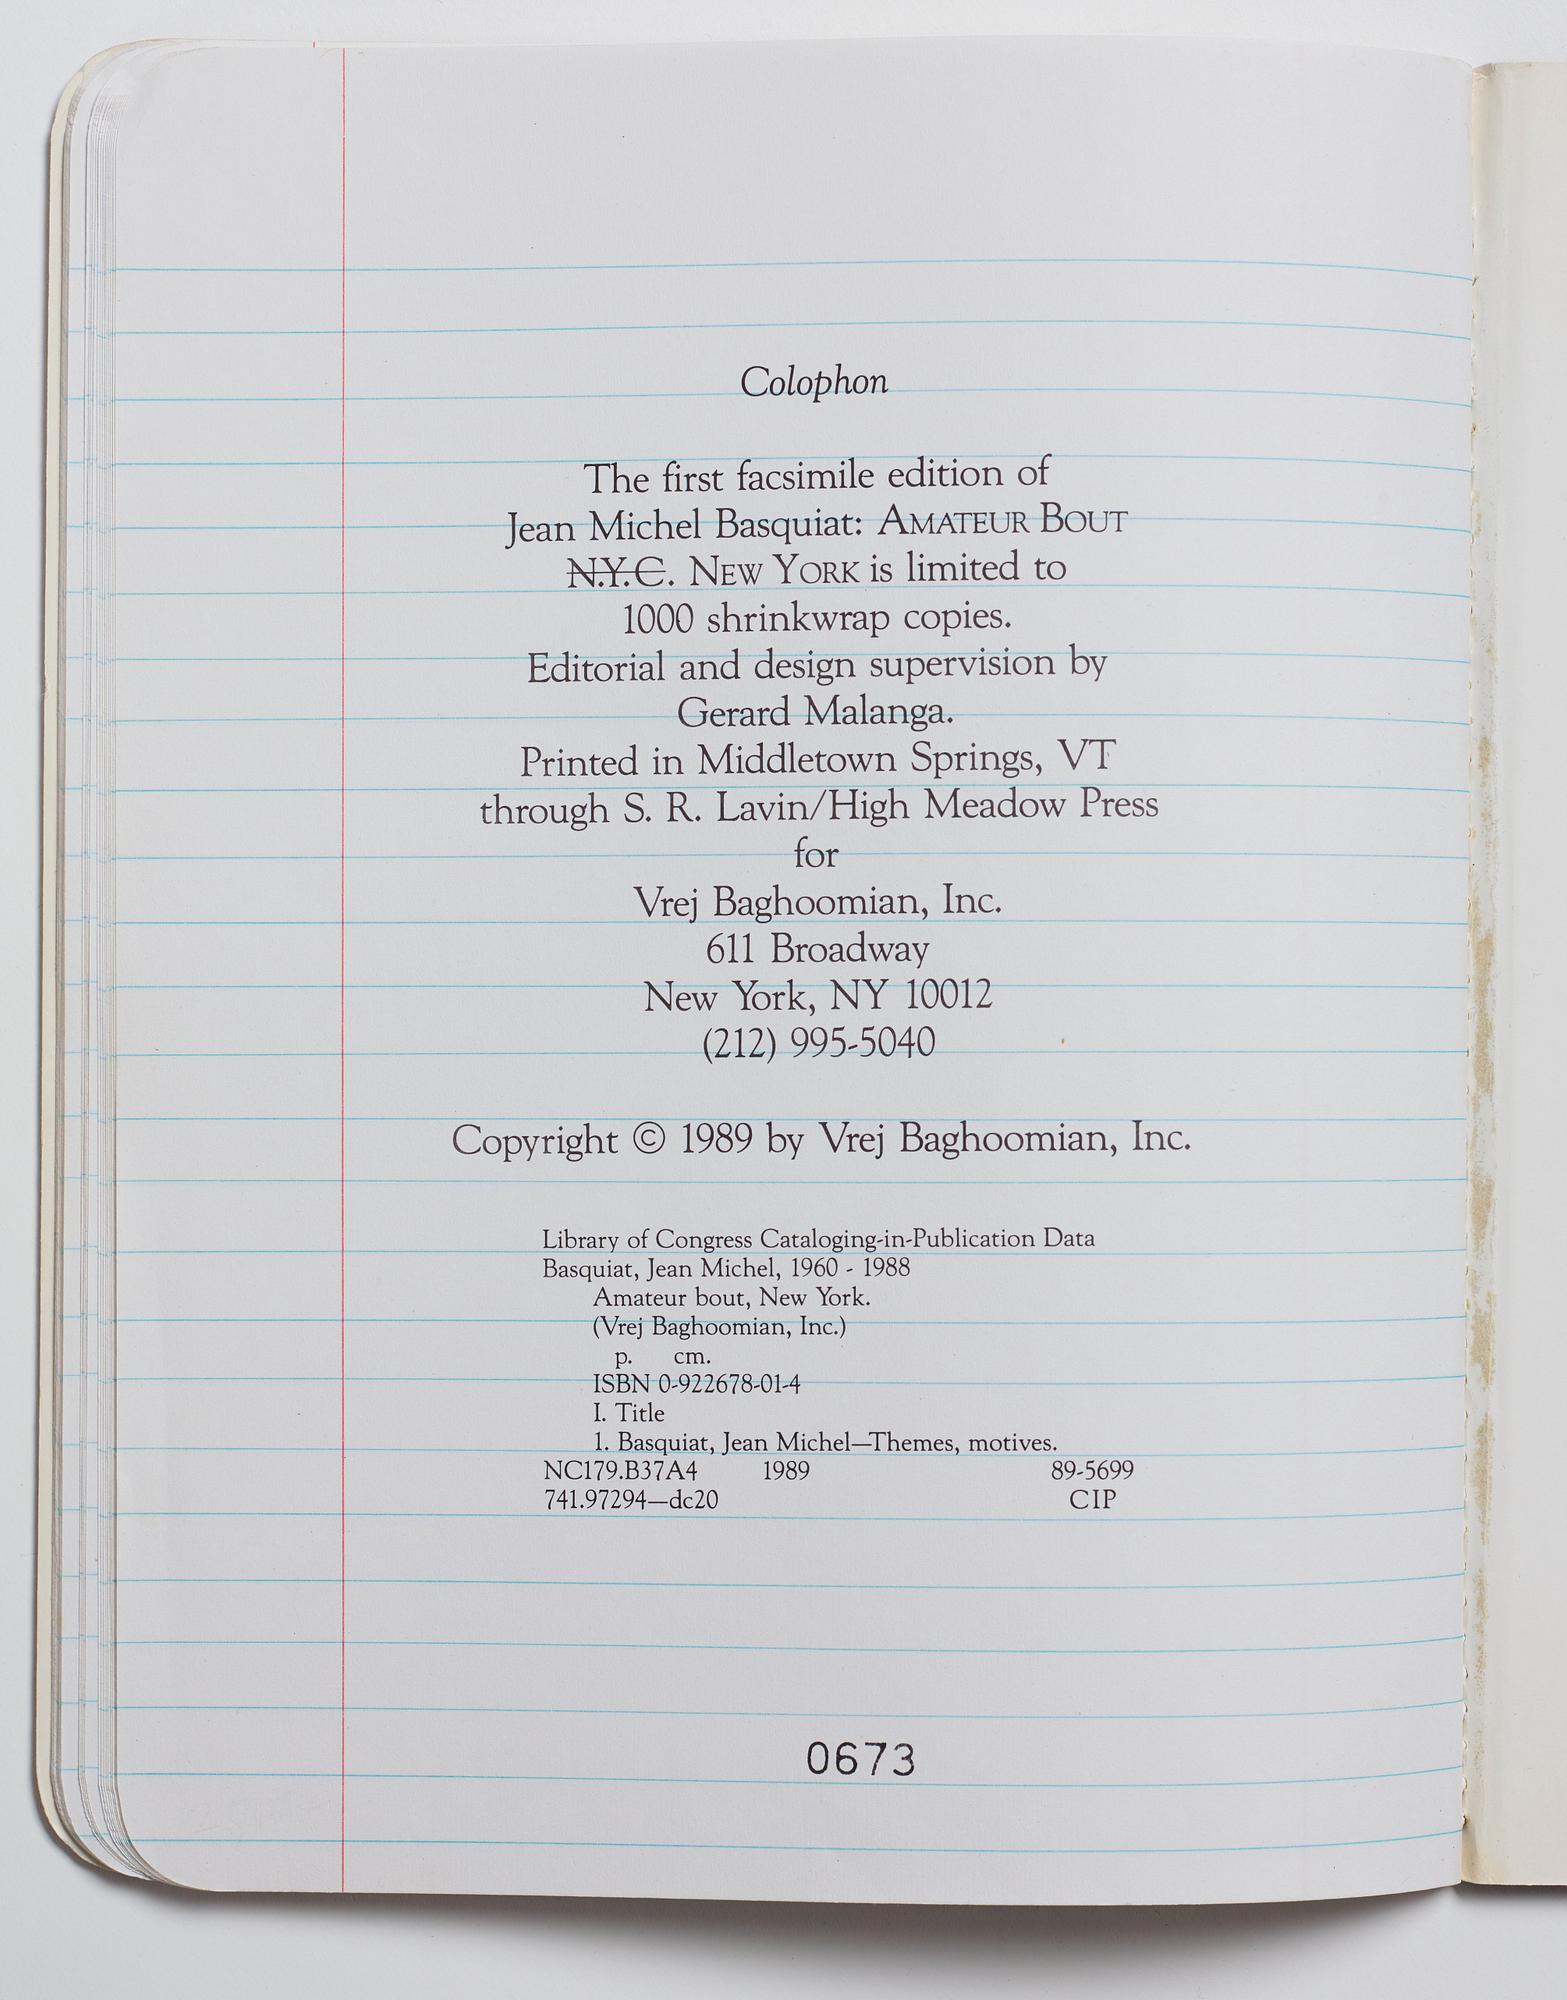 Colophon
The first facsimile edition of
Jean Michel Basquiat: AMATEUR BOUT
N.Y.C. NEW YORK is limited to
1000 shrinkwrap copies.
Editorial and design supervision by
Gerard Malanga.
Printed in Middletown Springs, VT
through S. R. Lavin/High Meadow Press
for
Vrej Baghoomian, Inc.
611 Broadway
New York, NY 10012
(212) 995-5040
Copyright © 1989 by Vrej Baghoomian, Inc.
Library of Congress Cataloging-in-Publication Data
Basquiat, Jean Michel, 1960 - 1988
Amateur bout, New York.
(Vrej Baghoomian, Inc.)
p. cm.
ISBN 0-922678-01-4
I. Title
1. Basquiat, Jean Michel—Themes, motives.
NC179.B37A4 1989 89-5699
741.97294—dc20 CIP
0673